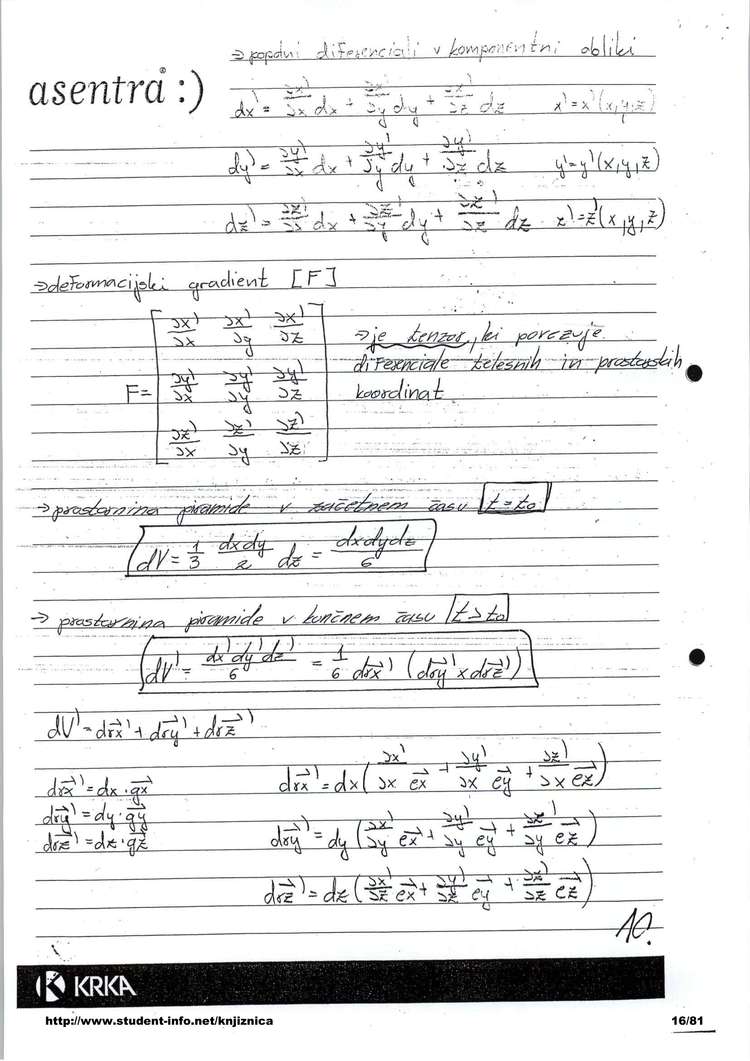 ⇒ popolni diferenciali v komponentni obliki
asentra® :)
dx' = ∂x'/∂x dx + ∂x'/∂y dy + ∂x'/∂z dz x' = x'(x,y,z)
dy' = ∂y'/∂x dx + ∂y'/∂y dy + ∂y'/∂z dz y' = y'(x,y,z)
dz' = ∂z'/∂x dx + ∂z'/∂y dy + ∂z'/∂z dz z' = z'(x,y,z)
⇒ deformacijski gradient [F]
F = [ ∂x'/∂x ∂x'/∂y ∂x'/∂z
∂y'/∂x ∂y'/∂y ∂y'/∂z
∂z'/∂x ∂z'/∂y ∂z'/∂z ]
⇒ je tenzor, ki povezuje
diferenciale telesnih in prostorskih
koordinat
⇒ prostornina piramide v začetnem času t = t₀
dV = 1/3 dxdy/2 dz = dxdydz/6
⇒ prostornina piramide v končnem času t > t₀
dV' = dx'dy'dz'/6 = 1/6 drx⃗' (dry⃗' × drz⃗')
dV' = drx⃗' + dry⃗' + drz⃗'
drx⃗' = dx · gx⃗
dry⃗' = dy · gy⃗
drz⃗' = dz · gz⃗
drx⃗' = dx (∂x'/∂x ex⃗ + ∂y'/∂x ey⃗ + ∂z'/∂x ez⃗)
dry⃗' = dy (∂x'/∂y ex⃗ + ∂y'/∂y ey⃗ + ∂z'/∂y ez⃗)
drz⃗' = dz (∂x'/∂z ex⃗ + ∂y'/∂z ey⃗ + ∂z'/∂z ez⃗)
10.
KRKA
http://www.student-info.net/knjiznica 16/81